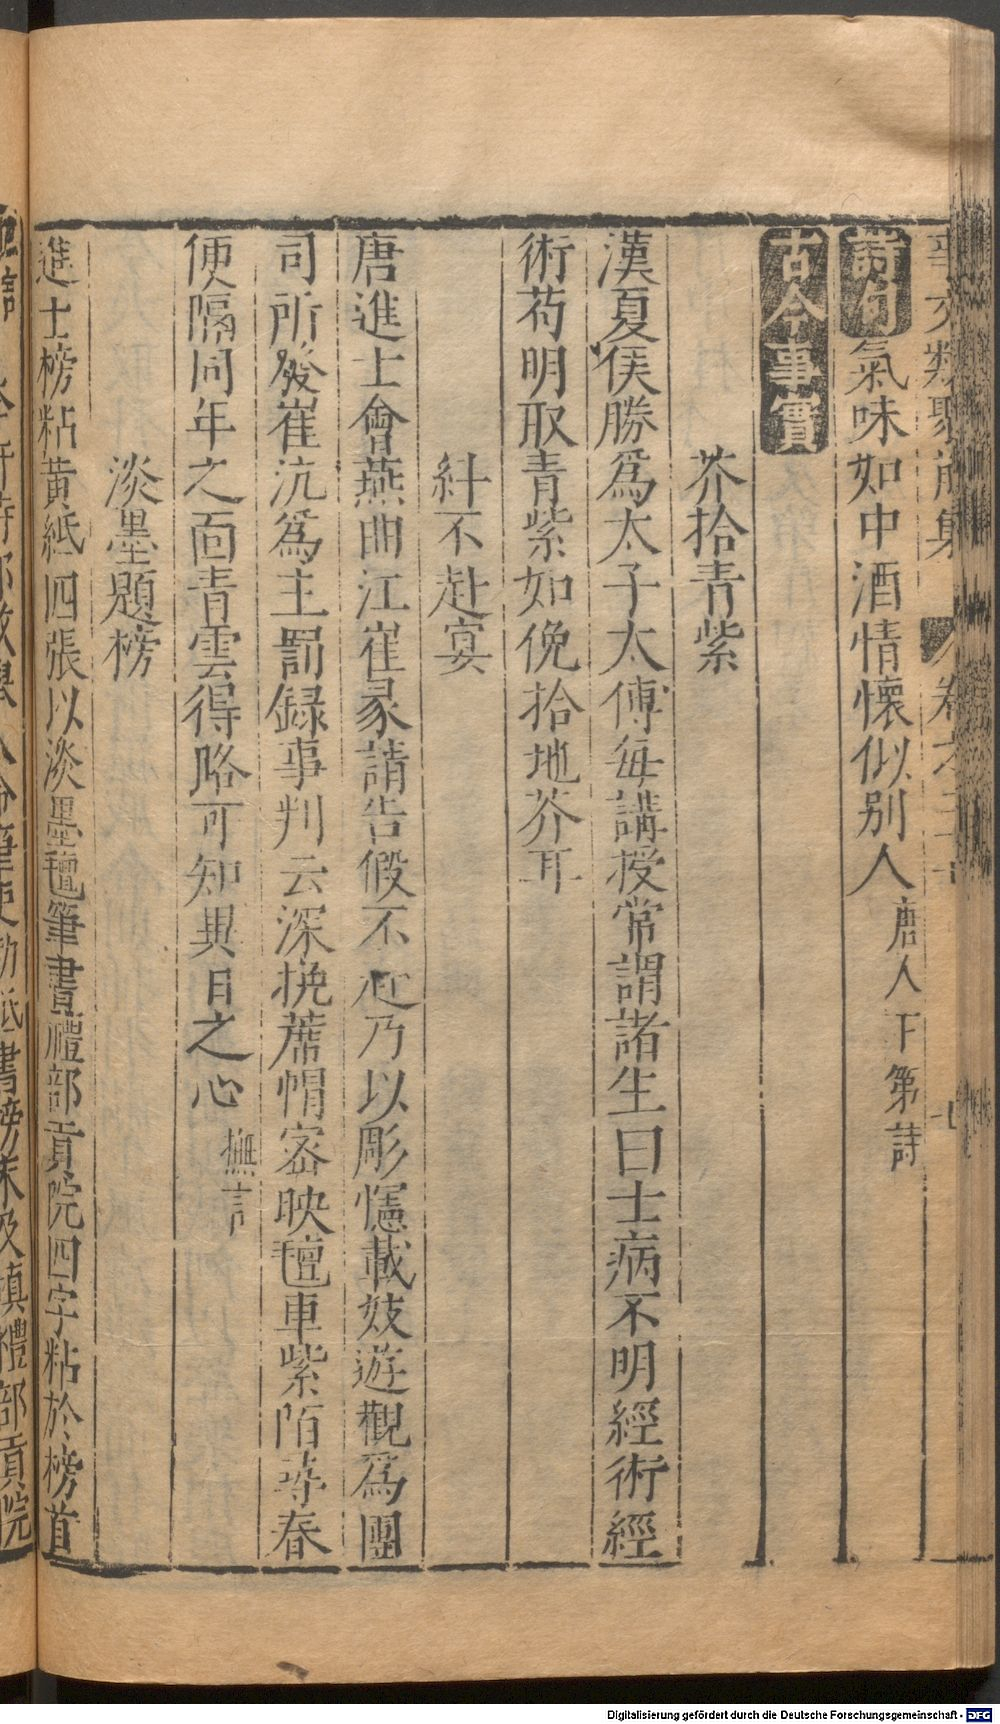 事文類聚前集 卷之二十 七
詩句 氣味如中酒情懷似别人 唐人下第詩
古今事實
芥拾青紫
漢夏侯勝爲太子太傅每講授常謂諸生曰士病不明經術經
術苟明取青紫如俛拾地芥耳
糾不赴宴
唐進士會燕曲江崔彖請告假不赴乃以彫幰載妓遊觀爲團
司所發崔沆爲主罰録事判云深挽蓆帽密映氊車紫陌尋春
便隔同年之面青雲得路可知異日之心 摭言
淡墨題榜
進士榜粘黄紙四張以淡墨氊筆書禮部貢院四字粘於榜首
書榜末及填禮部貢院
Digitalisierung gefördert durch die Deutsche Forschungsgemeinschaft - DFG